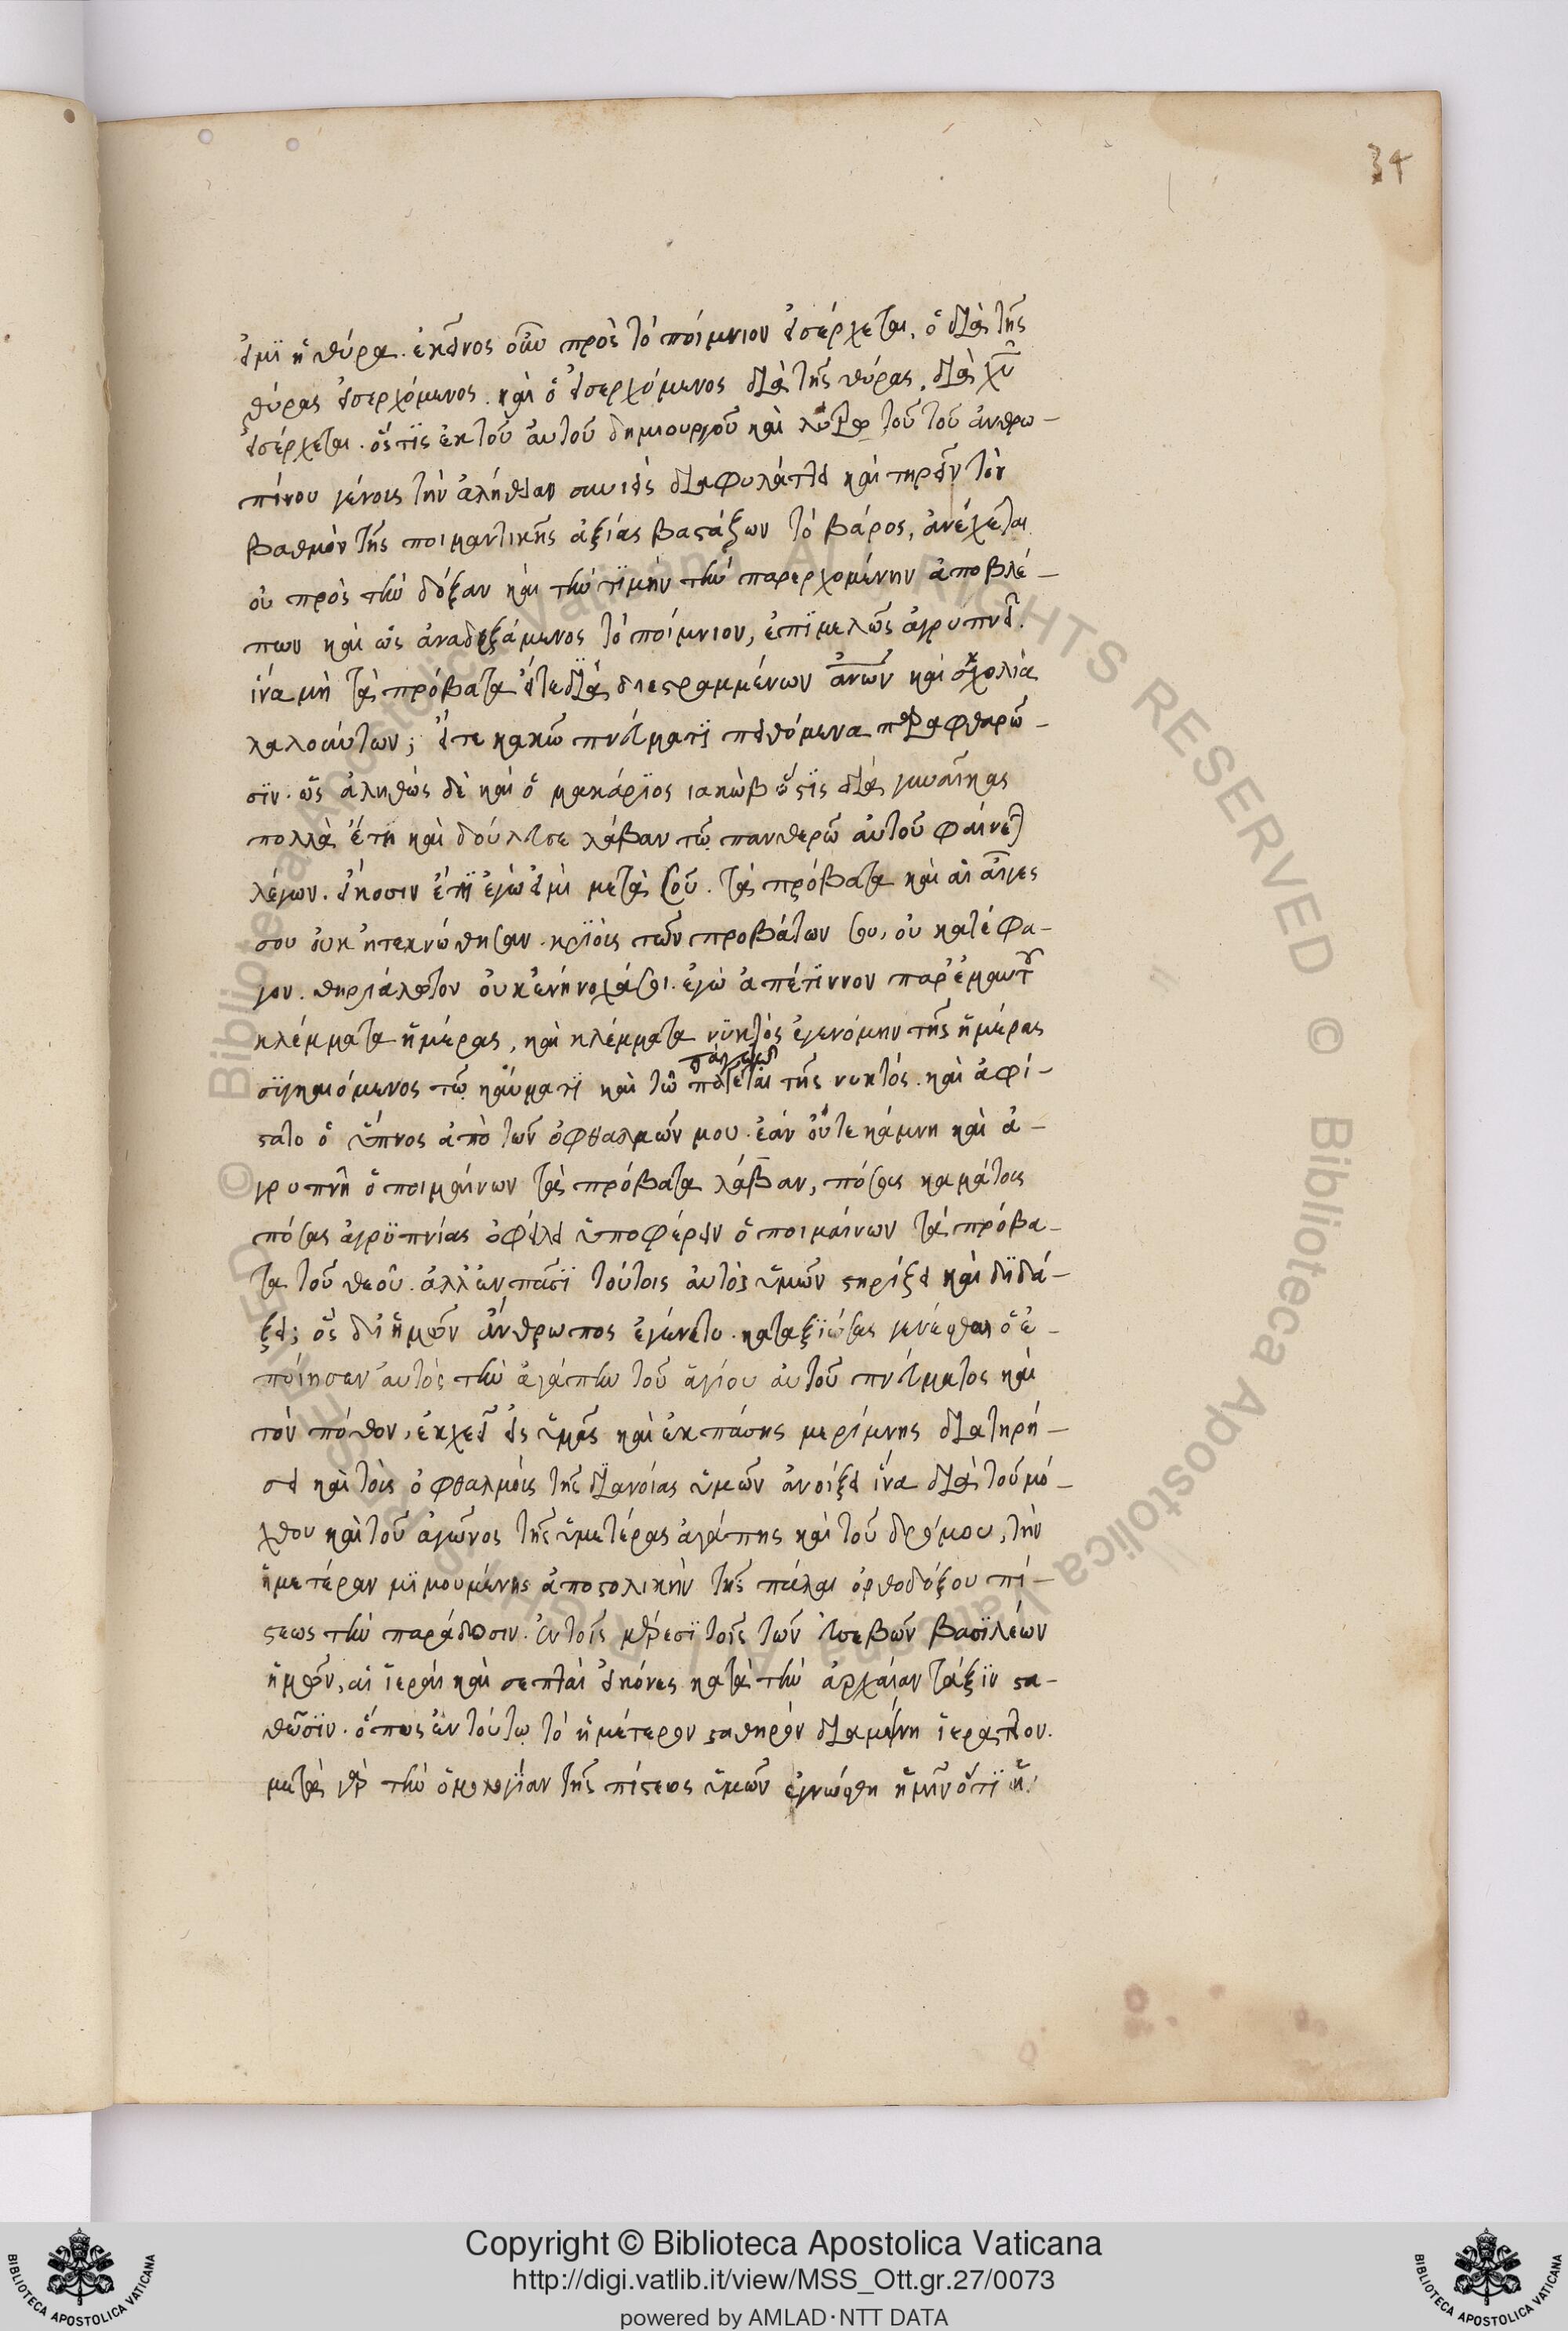 34
εἰμϊ ἡ θύρα. ἐκεῖνος οὖν πρὸς τὸ ποίμνιον εἰσέρχεται, ὁ διὰ τῆς
θύρας εἰσερχόμενος. καὶ ὁ εἰσερχόμενος διὰ τῆς θύρας, διὰ χυ
εἰσέρχεται. ὅς τϊς ἐκ τοῦ αὐτοῦ δημιουργοῦ καὶ τοῦ τοῦ ἀνθρω-
πίνου γένους τὴν ἀλήθειαν συνιεὶς διαφυλάττει καὶ τηρεῖν τὸν
βαθμὸν τῆς ποιμαντικῆς ἀξίας βαστάζων τὸ βάρος, ἀνέχεται
οὐ πρὸς τὴν δόξαν καὶ τὴν τϊμὴν τὴν παρερχομένην ἀποβλέ-
πων καὶ ὡς ἀναδεξάμενος τὸ ποίμνιον, ἐπϊμελῶς ἀγρυπνεῖ.
ἵνα μὴ τὰ πρόβατα εἴτε διὰ διεστραμμένων ἀνων καὶ σκολιὰ
λαλούντων; εἴτε κακῶ πνεύματϊ πειθόμενα διαφθαρῶ-
σϊν. ὡς ἀληθῶς δὲ καὶ ὁ μακάρϊος ιακὼβ ὅστϊς διὰ γυναῖκας
πολλὰ ἔτη καὶ δούλευσε λάβαν τῶ πανθερῶ αὐτοῦ φαίνεται
λέγων. εἴκοσιν ἔτη ἐγὼ εἰμὶ μετὰ σοῦ. τὰ πρόβατα καὶ αἱ αἶγες
σου οὐκ ἠτεκνώθησαν. κρϊοὺς τῶν προβάτων σου, οὐ κατέφα-
γον. θηριάλωτον οὐκ ἐνήνοχά σοι. ἐγὼ ἀπετίννον παρ' ἐμαυτοῦ
κλέμματα ἡμέρας, καὶ κλέμματα νϋκτὸς ἐγενόμην τῆς ἡμέρας
σϋγκαιόμενος τῶ καύματϊ καὶ τῶ παγετῶ τῆς νυκτός. καὶ ἀφί-
στατο ὁ ὕπνος ἀπὸ τῶν ὀφθαλμῶν μου. ἐὰν οὕτε κάμνη καὶ ἀ-
γρυπνῆ ὁ ποιμαίνων τὰ πρόβατα λάβαν, πόσους καμάτους
πόσας ἀγρϋπνίας ὀφείλει ὑποφέρειν ὁ ποιμαίνων τὰ πρόβα-
τα τοῦ θεοῦ. ἀλλ' ἐν πᾶσϊ τούτοις αὐτὸς ὑμῶν στηρίξει καὶ δϊδά-
ξει; ὃς δι' ἡμῶν ἄνθρωπος ἐγένετο. καταξϊώσας γενέσθαι ὃ ἐ-
ποίησεν αὐτὸς τὴν ἀγάπην τοῦ ἁγίου αὐτοῦ πνεύματος καὶ
τὸν πόθον, ἐκχεεῖ εἰς ὑμᾶς καὶ ἐκ πάσης μερίμνης διατηρή-
σει καὶ τοὺς ὀφθαλμοὺς τῆς διανοίας ὑμῶν ἀνοίξει ἵνα διὰ τοῦ μό-
χθου καὶ τοῦ ἀγῶνος τῆς ὑμετέρας ἀγάπης καὶ τοῦ δρόμου, τὴν
ἡμετέραν μϊμουμένης ἀποστολικὴν τῆς πάλαι ὀρθοδόξου πί-
στεως τὴν παράδοσιν. ἐν τοῖς μέρεσϊ τοῖς τῶν εὐσεβῶν βασϊλέων
ἡμῶν, αἱ ἱεραὶ καὶ σεπταὶ εἰκόνες κατὰ τὴν ἀρχαίαν τάξϊν στα-
θῶσϊν. ὅπως ἐν τούτω τὸ ἡμέτερον σταθηρὸν διαμείνη ἱερατεῖον.
μετὰ γὰρ τὴν ὁμολογΐαν τῆς πίστεως ὑμῶν ἐγνώσθη ἡμῖν ὅτϊ ἡ
© Biblioteca Apostolica Vaticana ALL RIGHTS RESERVED © Biblioteca Apostolica Vaticana ALL RIGHTS RESERVED
Copyright © Biblioteca Apostolica Vaticana
http://digi.vatlib.it/view/MSS_Ott.gr.27/0073
powered by AMLAD·NTT DATA
BIBLIOTECA APOSTOLICA VATICANA
BIBLIOTECA APOSTOLICA VATICANA